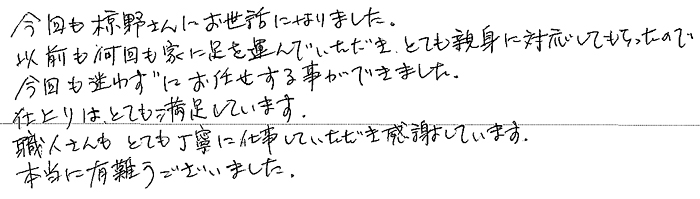 今回も椋野さんにお世話になりました。
以前も何回も家に足を運んでいただき、とても親身に対応してもらったので
今回も迷わずにお任せする事ができました。
仕上りは、とても満足しています。
職人さんも とても丁寧に仕事していただき感謝しています。
本当に有難うございました。